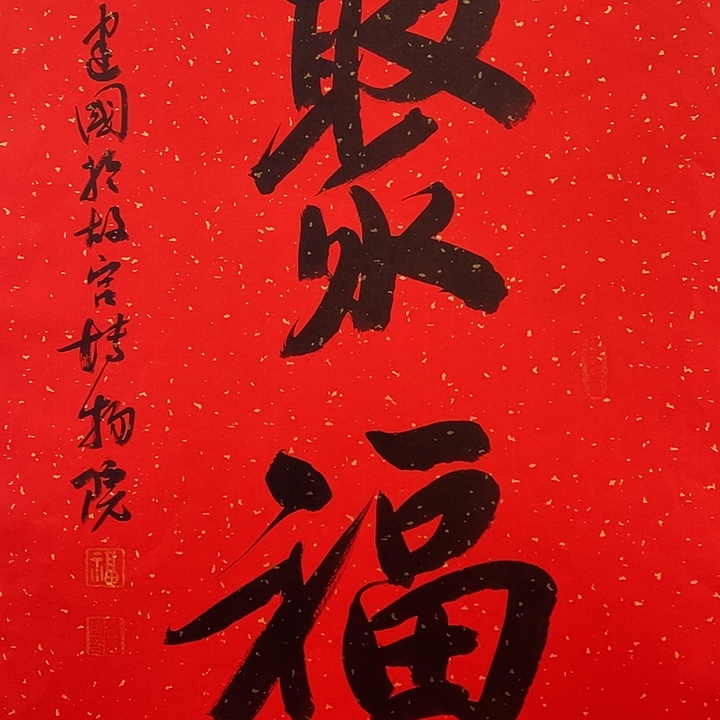 聚福
建國於故宫博物院
福